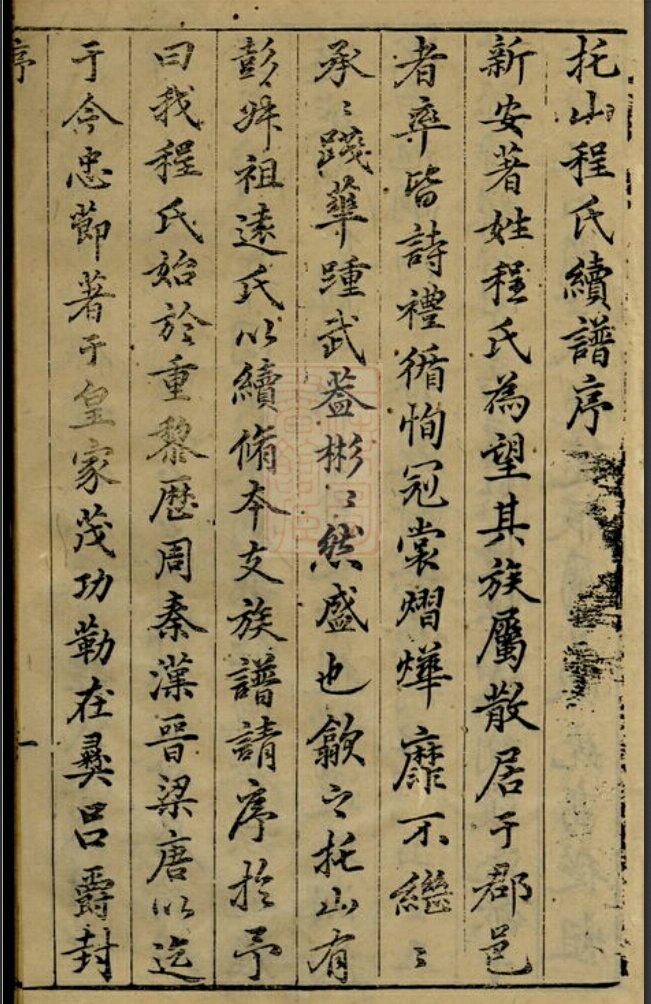 托山程氏續譜序
新安著姓程氏為望其族屬散居于郡邑
者率皆詩禮循恂冠裳熠燁靡不繼〻
承〻踐華踵武葢彬〻然盛也歙之托山有
彭㛮祖遠氏以續脩本支族譜請序於予
曰我程氏始於重黎歷周秦漢晉梁唐以迄
于今忠節著于皇家茂功勒在彞呂爵封
序
一